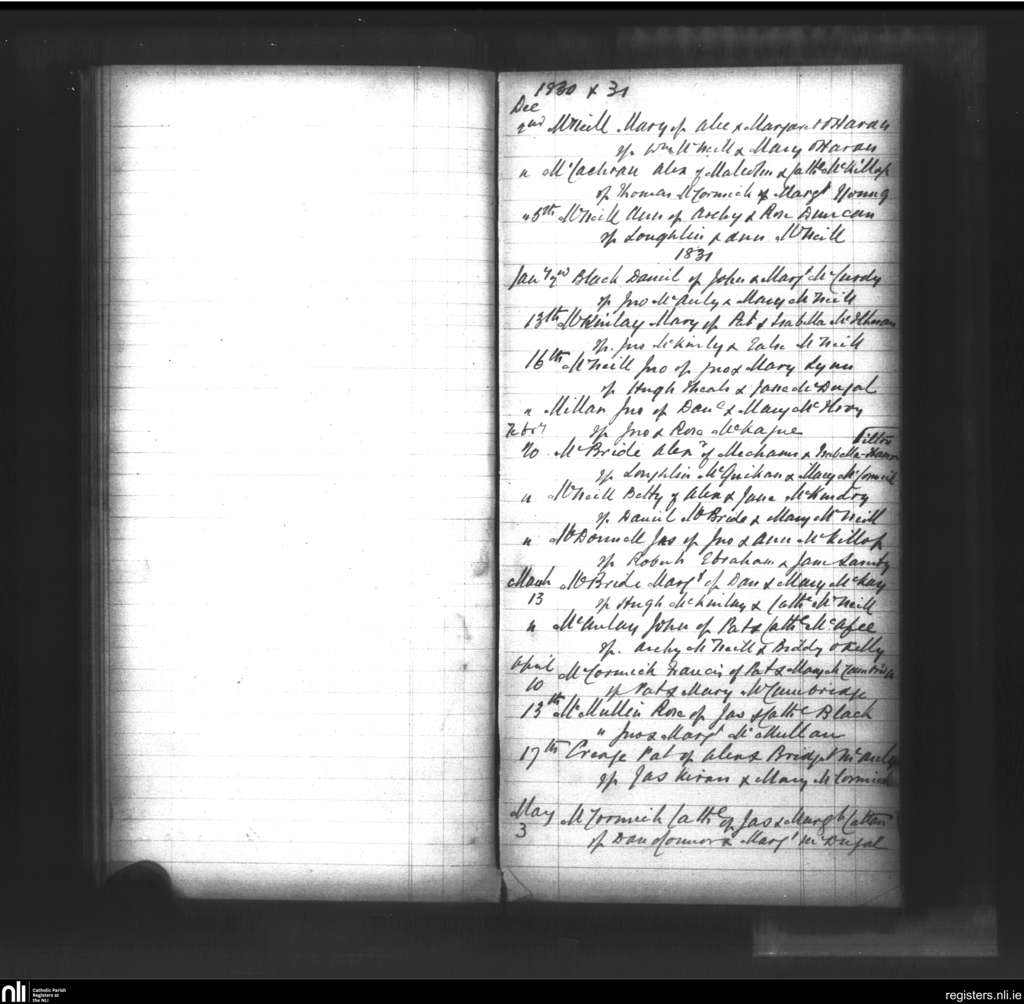 1830 & 31
Dec
2nd McNeill Mary of Alex & Margaret O'Haran
sp Wm McNeill & Mary O'Haran
" McCachran Alex of Malcolm & Cathe McKillop
sp Thomas McCormick & Margt Young
" 5th McNeill Ann of Archy & Rose Duncan
sp Loughlin & Ann McNeill
1831
Jany 2nd Black Daniel of John & Margt McCurdy
sp Jno McAuly & Mary McNeill
13th McKinlay Mary of Pat & Isabella
sp. Jno McKinly & McNeill
16th McNeill Jno of Jno & Mary Lynn
sp Hugh & Jane McDugal
" Millan Jno of Danl & Mary McIlroy
Feby sp Jno & Rose McKague
20 McBride Alexr of & Isabella
sp Loughlin & Mary McCormick
" McNeill Betty of Alex & Jane McKendry
sp Daniel McBride & Mary McNeill
" McDonnell Jas of Jno & Ann McKillop
sp Robert Ebraham & Jane
March McBride Margt of Dan & Mary McKay
13 sp Hugh McKinlay & Cathe McNeill
" McAulay John of Pat & Cathe McAfee
sp. Archy McNeill & Biddy O'Kelly
April McCormick Francis of Pat & Mary McCambridge
10 sp Pat & Mary McCambridge
13th McMullin Rose of Jas & Cathe Black
" Jno & Margt McMullan
17th Pat of Alex & Bridget McAuly
sp Jas Kiran & Mary McCormick
May McCormick Cathe of Jas & Margt
3 sp Dan O'Connor & Margt McDugal
nli
Catholic Parish
Registers at
the NLI
registers.nli.ie